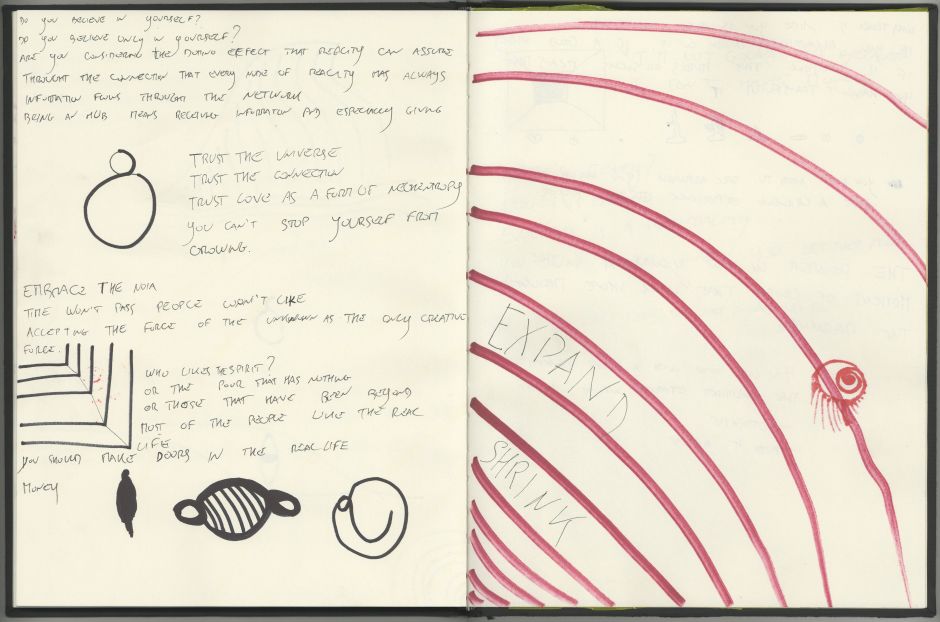 DO YOU BELIEVE IN YOURSELF?
DO YOU BELIEVE ONLY IN YOURSELF?
ARE YOU CONSIDERING THE DOMINO EFFECT THAT REALITY CAN ASSUME
THROUGHT THE CONNECTION THAT EVERY NODE OF REALITY HAS ALWAYS
INFORMATION FLOWS THROUGHT THE NETWORK
BEING AN HUB MEANS RECEIVING INFORMATION AND ESPECIALLY GIVING
TRUST THE UNIVERSE
TRUST THE CONNECTION
TRUST LOVE AS A FORM OF NEGHENTROPY
YOU CAN'T STOP YOURSELF FROM
GROWING.
EMBRACE THE NOIA
TIME WON'T PASS PEOPLE WON'T LIKE
ACCEPTING THE FORCE OF THE UNKNOWN AS THE ONLY CREATIVE
FORCE.
WHO LIKES THE SPIRIT?
OR THE POUR THAT HAS NOTHING
OR THOSE THAT HAVE BEEN BEYOND
MOST OF THE PEOPLE LIKE THE REAL
LIFE
YOU SHOULD MAKE DOORS IN THE REAL LIFE
MONEY
EXPAND
SHRINK